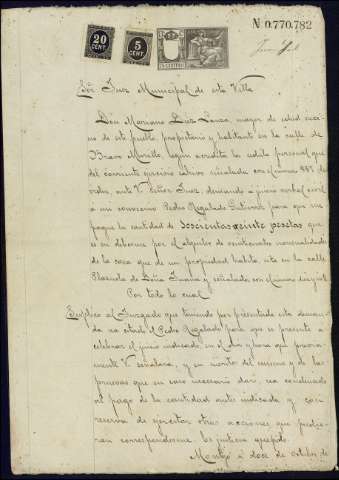 Nº 0.770.782
20
CENT.
5
CENT.
Sor. Juez Municipal de esta Villa
Don Mariano mayor de edad veci-
no de este pueblo, propietario y habitante en la calle de
Bravo Murillo, según acredita la cédula personal que
del corriente ejercicio exhibe señalada con el número
orden, ante V. Señor Juez, demando a juicio verbal civil
a mi convecino Pedro Regalado Gutierrez para que me
pague la cantidad de doscientas veinte pesetas que
es en deberme por el alquiler de mensualidades
de la casa que de mi propiedad habita, sita en la calle
Plazuela de Doña y señalada con el número
Por todo lo cual
Suplico al Juzgado que teniendo por presentada esta deman-
da se cite al Pedro Regalado para que se presente a
celebrar el juicio indicado, en el día y hora que
mente V. señalará, y en mérito del mismo y de las
pruebas que en caso necesario daré, sea condenado
al pago de la cantidad antes indicada y con
reserva de ejercitar otras acciones que pudie-
ran corresponderme. Es justicia que pido.
Montijo a doce de Octubre de